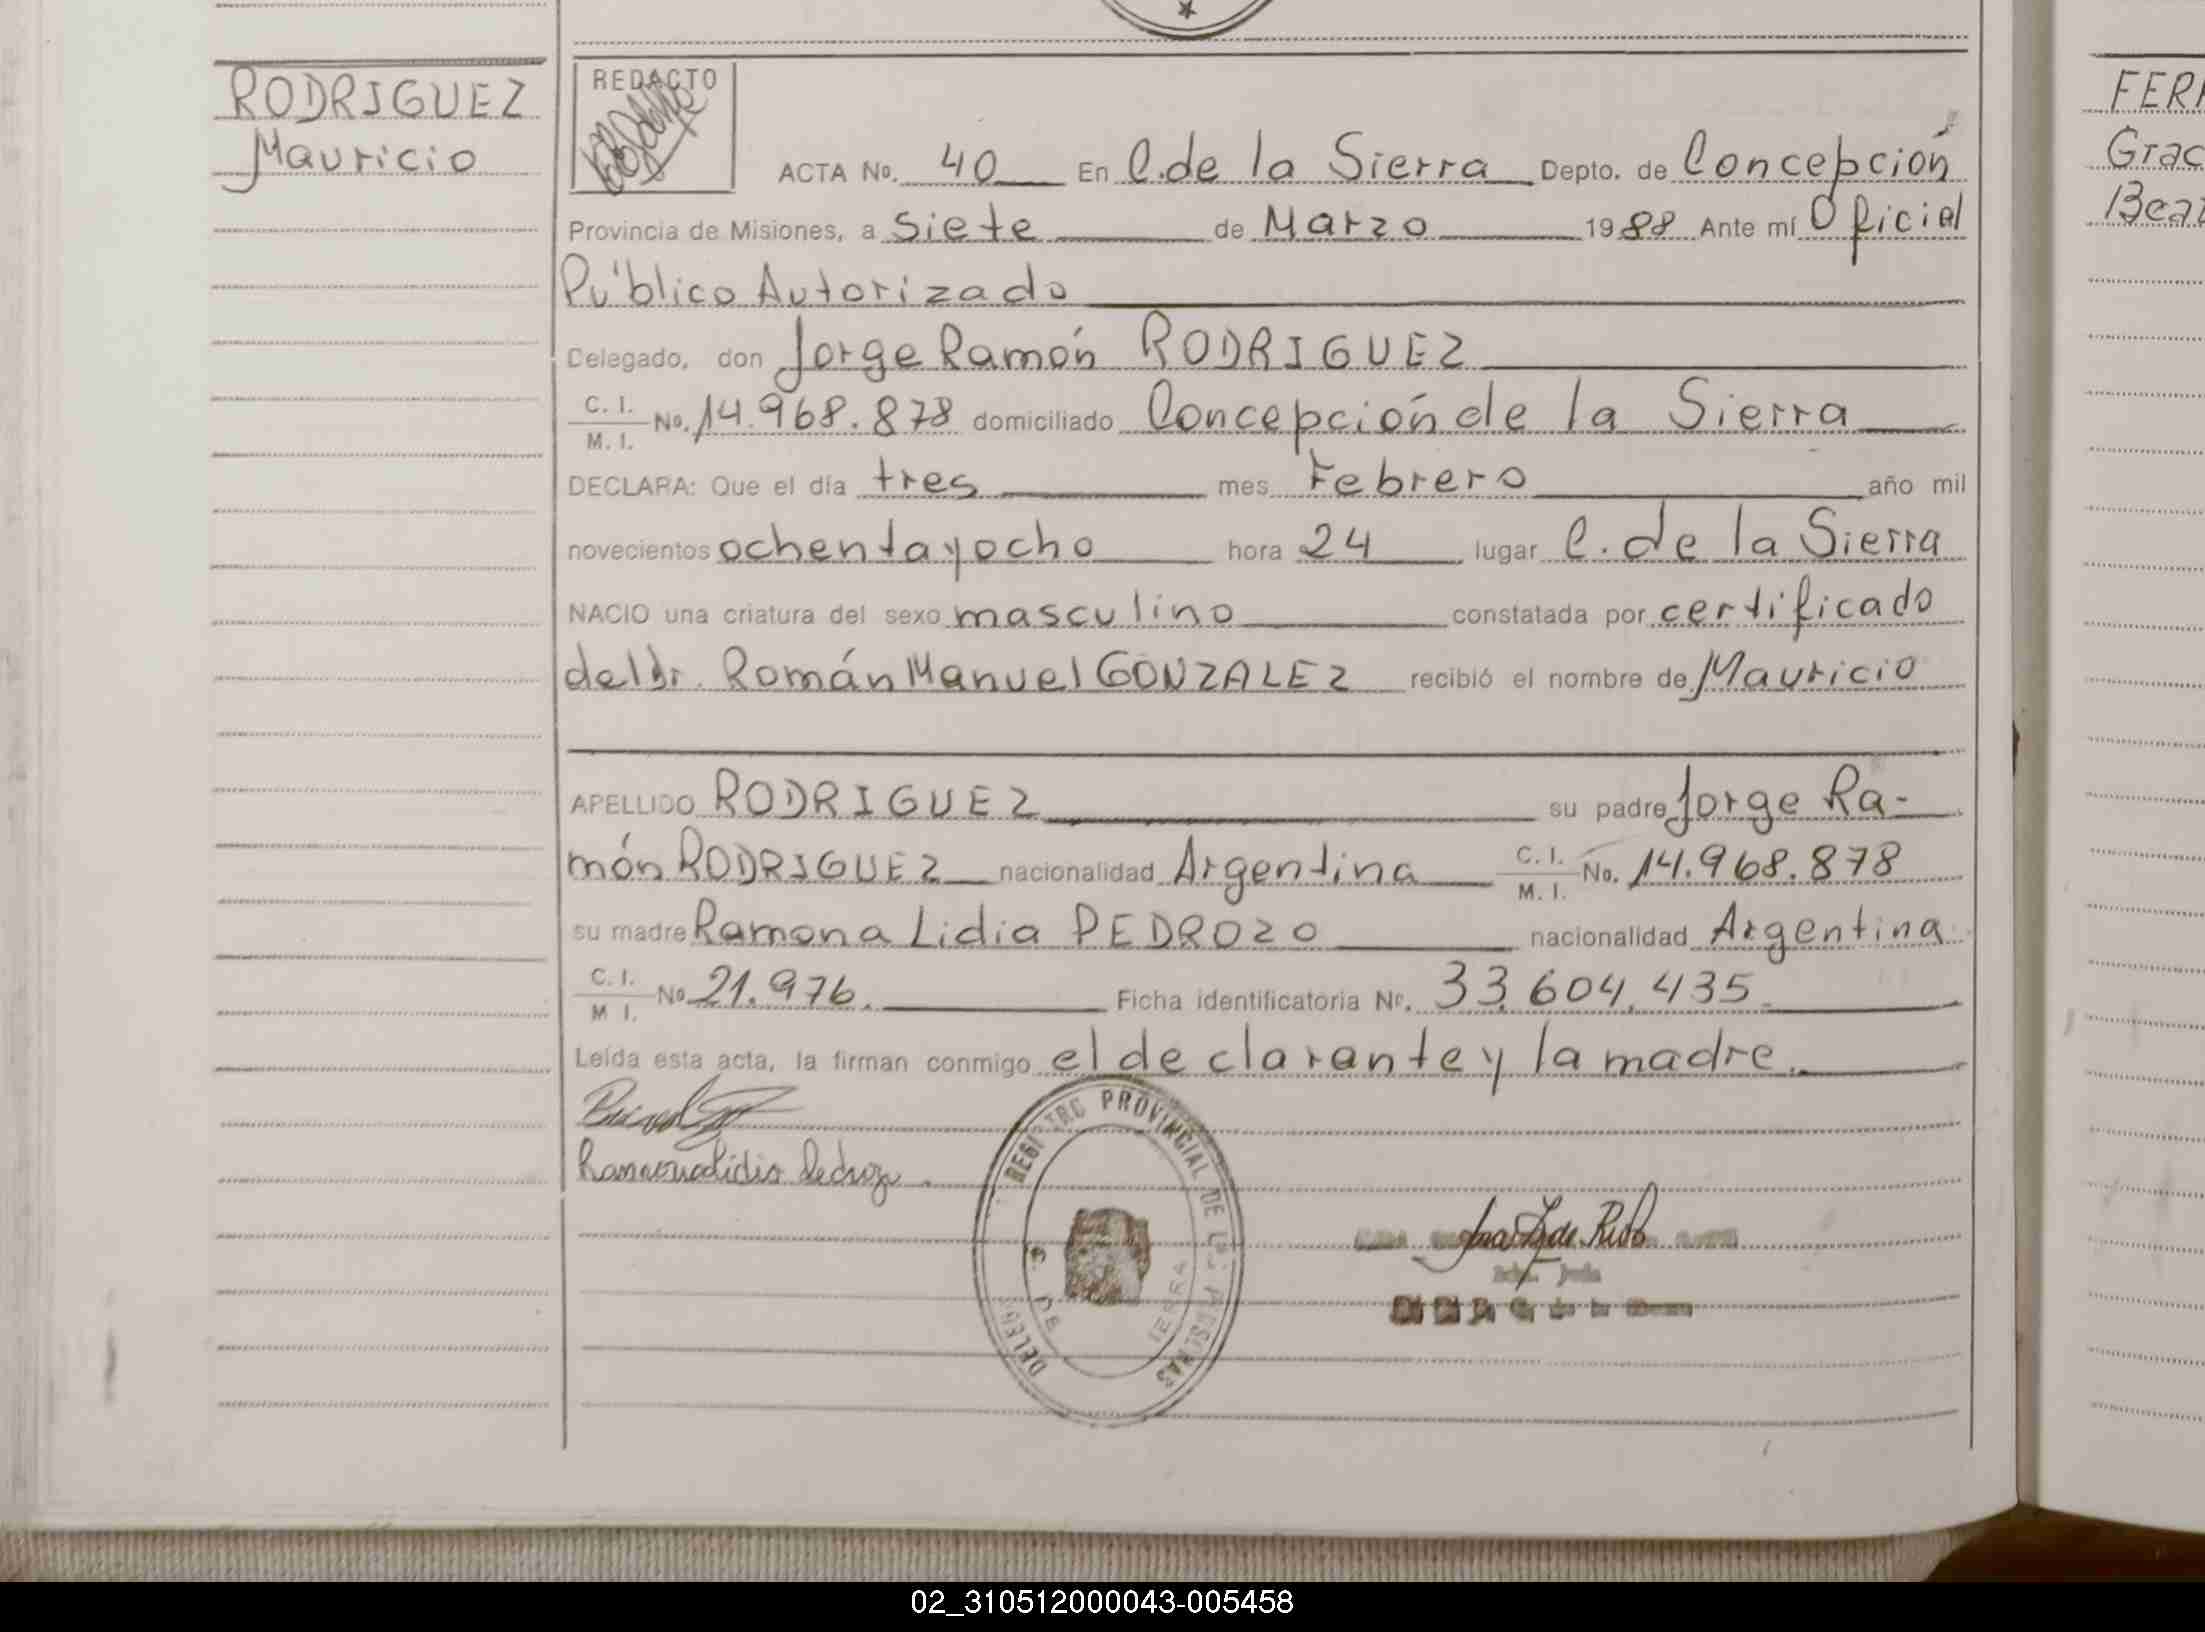 RODRIGUEZ
Mauricio
REDACTO
ACTA No. 40 En C. de la Sierra Depto. de Concepción
Provincia de Misiones, a siete de Marzo 1988 Ante mí Oficial
Público Autorizado
Delegado, don Jorge Ramón RODRIGUEZ
C. I. M. I. No. 14.968.878 domiciliado Concepción de la Sierra
DECLARA: Que el día tres mes Febrero año mil
novecientos ochenta y ocho hora 24 lugar C. de la Sierra
NACIO una criatura del sexo masculino constatada por certificado
del Dr. Román Manuel GONZALEZ recibió el nombre de Mauricio
APELLIDO RODRIGUEZ su padre Jorge Ra-
món RODRIGUEZ nacionalidad Argentina C. I. M. I. No. 14.968.878
su madre Ramona Lidia PEDROZO nacionalidad Argentina
C. I. M I. No 21.976. Ficha identificatoria Nº. 33.604.435
Leída esta acta, la firman conmigo el declarante y la madre.
Ramona Lidia Pedrozo
REGISTRO PROVINCIAL DE LAS PERSONAS
DE
SIERRA
FER
Grac
Bea
02_310512000043-005458